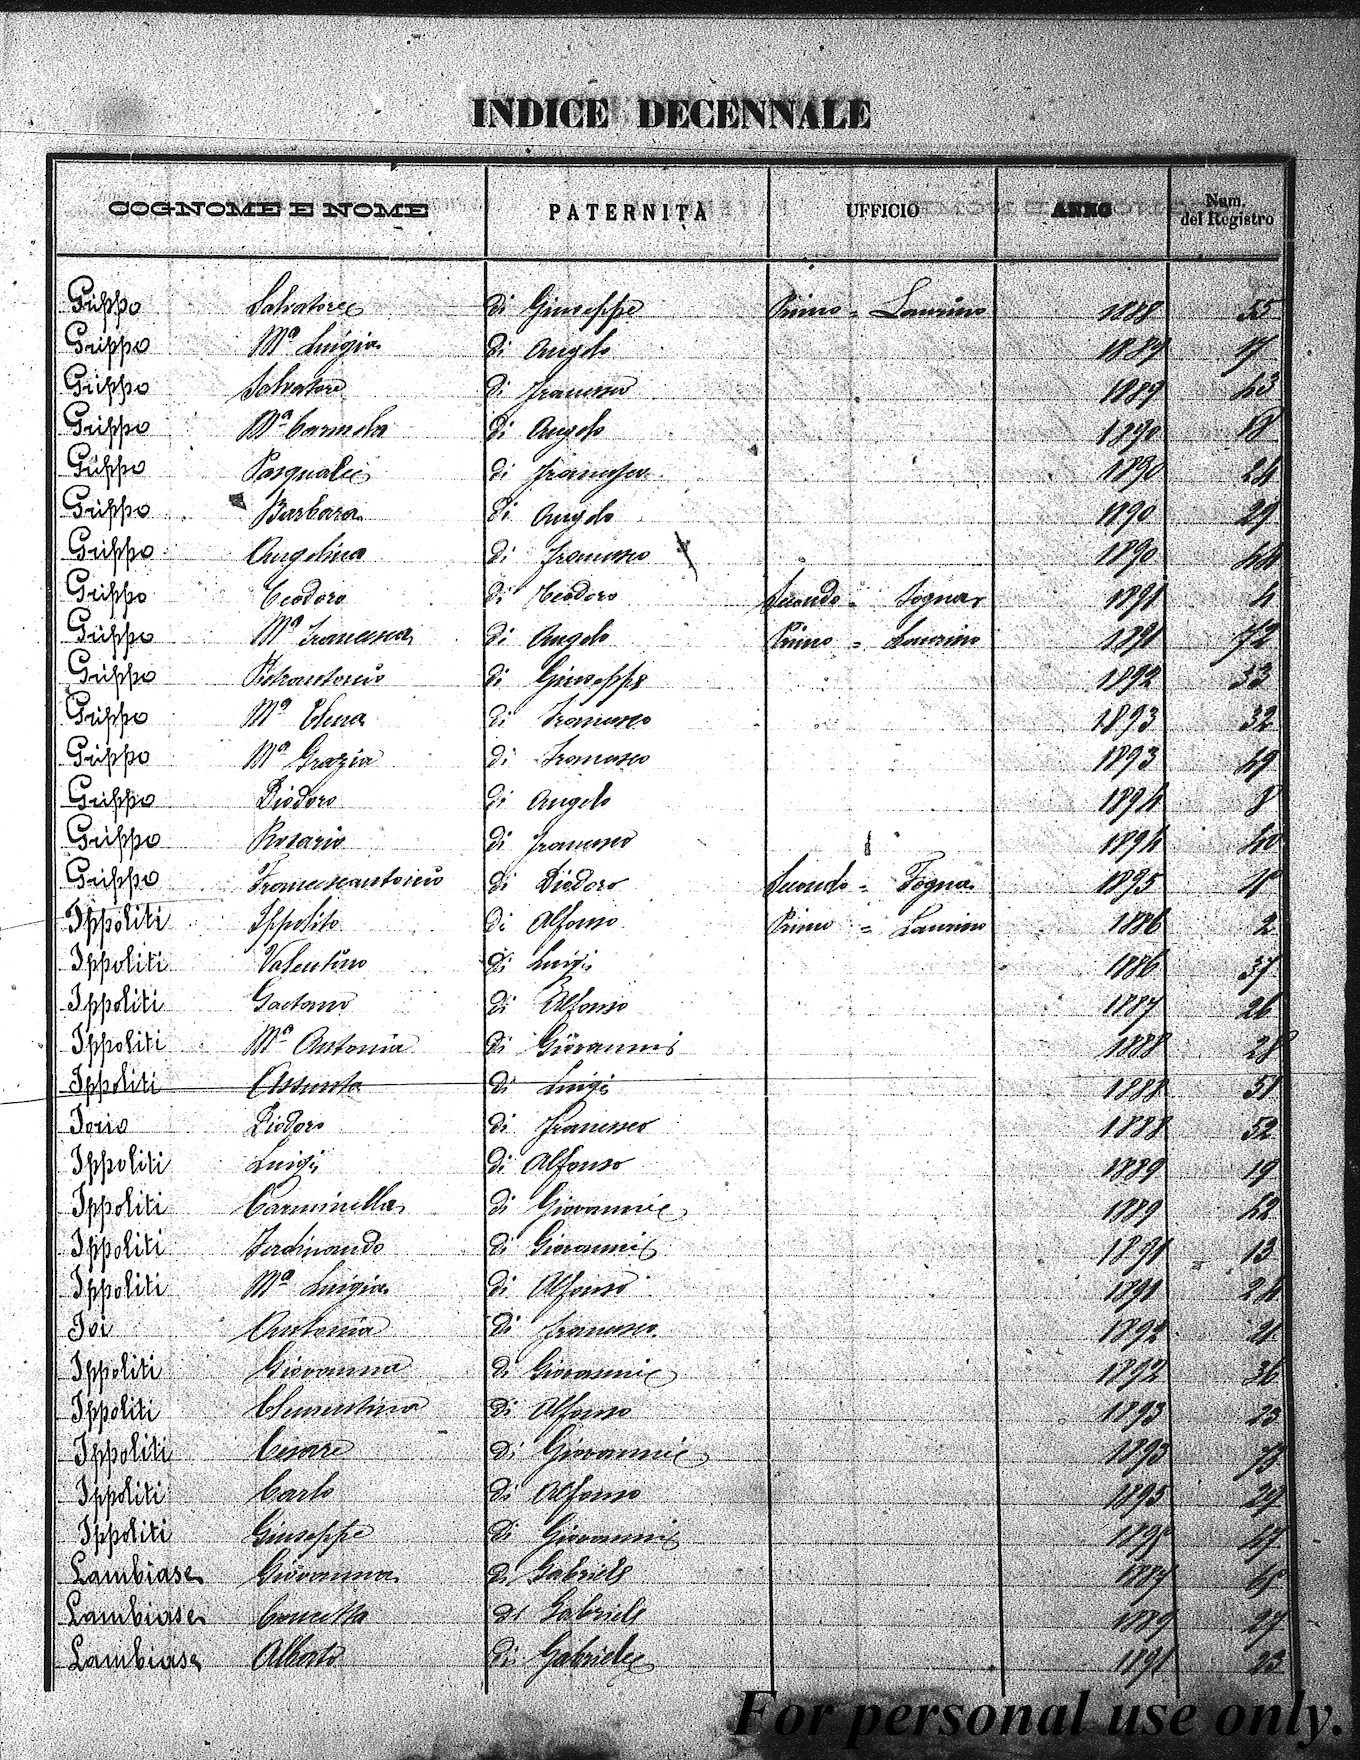 INDICE DECENNALE
COGNOME E NOME PATERNITÀ UFFICIO ANNO Num. del Registro
Grippo Salvatore di Giuseppe Primo = Laurino 1888 55
Grippo Mª Luigia di Angelo 1889 17
Grippo Salvatore di Francesco 1889 43
Grippo Mª Carmela di Angelo 1890 18
Grippo Pasquale di Francesco 1890 24
Grippo Barbara di Angelo 1890 29
Grippo Angelina di Francesco 1890 44
Grippo Teodoro di Teodoro Secondo = Fogna 1891 4
Grippo Mª Francesca di Angelo Primo = Laurino 1891 72
Grippo Pietrantonio di Giuseppe 1892 33
Grippo Mª Elena di Francesco 1893 32
Grippo Mª Grazia di Francesco 1893 49
Grippo Diodoro di Angelo 1894 8
Grippo Rosario di Francesco 1894 40
Grippo Francescantonio di Diodoro Secondo = Fogna 1895
Ippoliti Ippolito di Alfonso Primo = Laurino 1886 2
Ippoliti Valentino di Luigi 1886 37
Ippoliti Gaetano di Alfonso 1887 26
Ippoliti Mª Antonia di Giovanni 1888 28
Ippoliti Assunta di Luigi 1888 51
Iorio Diodoro di Francesco 1888 52
Ippoliti Luigi di Alfonso 1889 19
Ippoliti Carminella di Giovanni 1889 42
Ippoliti Ferdinando di Giovanni 1891 13
Ippoliti Mª Luigia di Alfonso 1891 24
Ioi Antonia di Francesco 1892 21
Ippoliti Giovanna di Giovanni 1892 36
Ippoliti Clementina di Alfonso 1893 23
Ippoliti Cesare di Giovanni 1893 73
Ippoliti Carlo di Alfonso 1895 27
Ippoliti Giuseppe di Giovanni 1895 47
Lambiase Giovanna di Gabriele 1887 65
Lambiase Concetta di Gabriele 1889 27
Lambiase Alberto di Gabriele 1891 23
For personal use only.